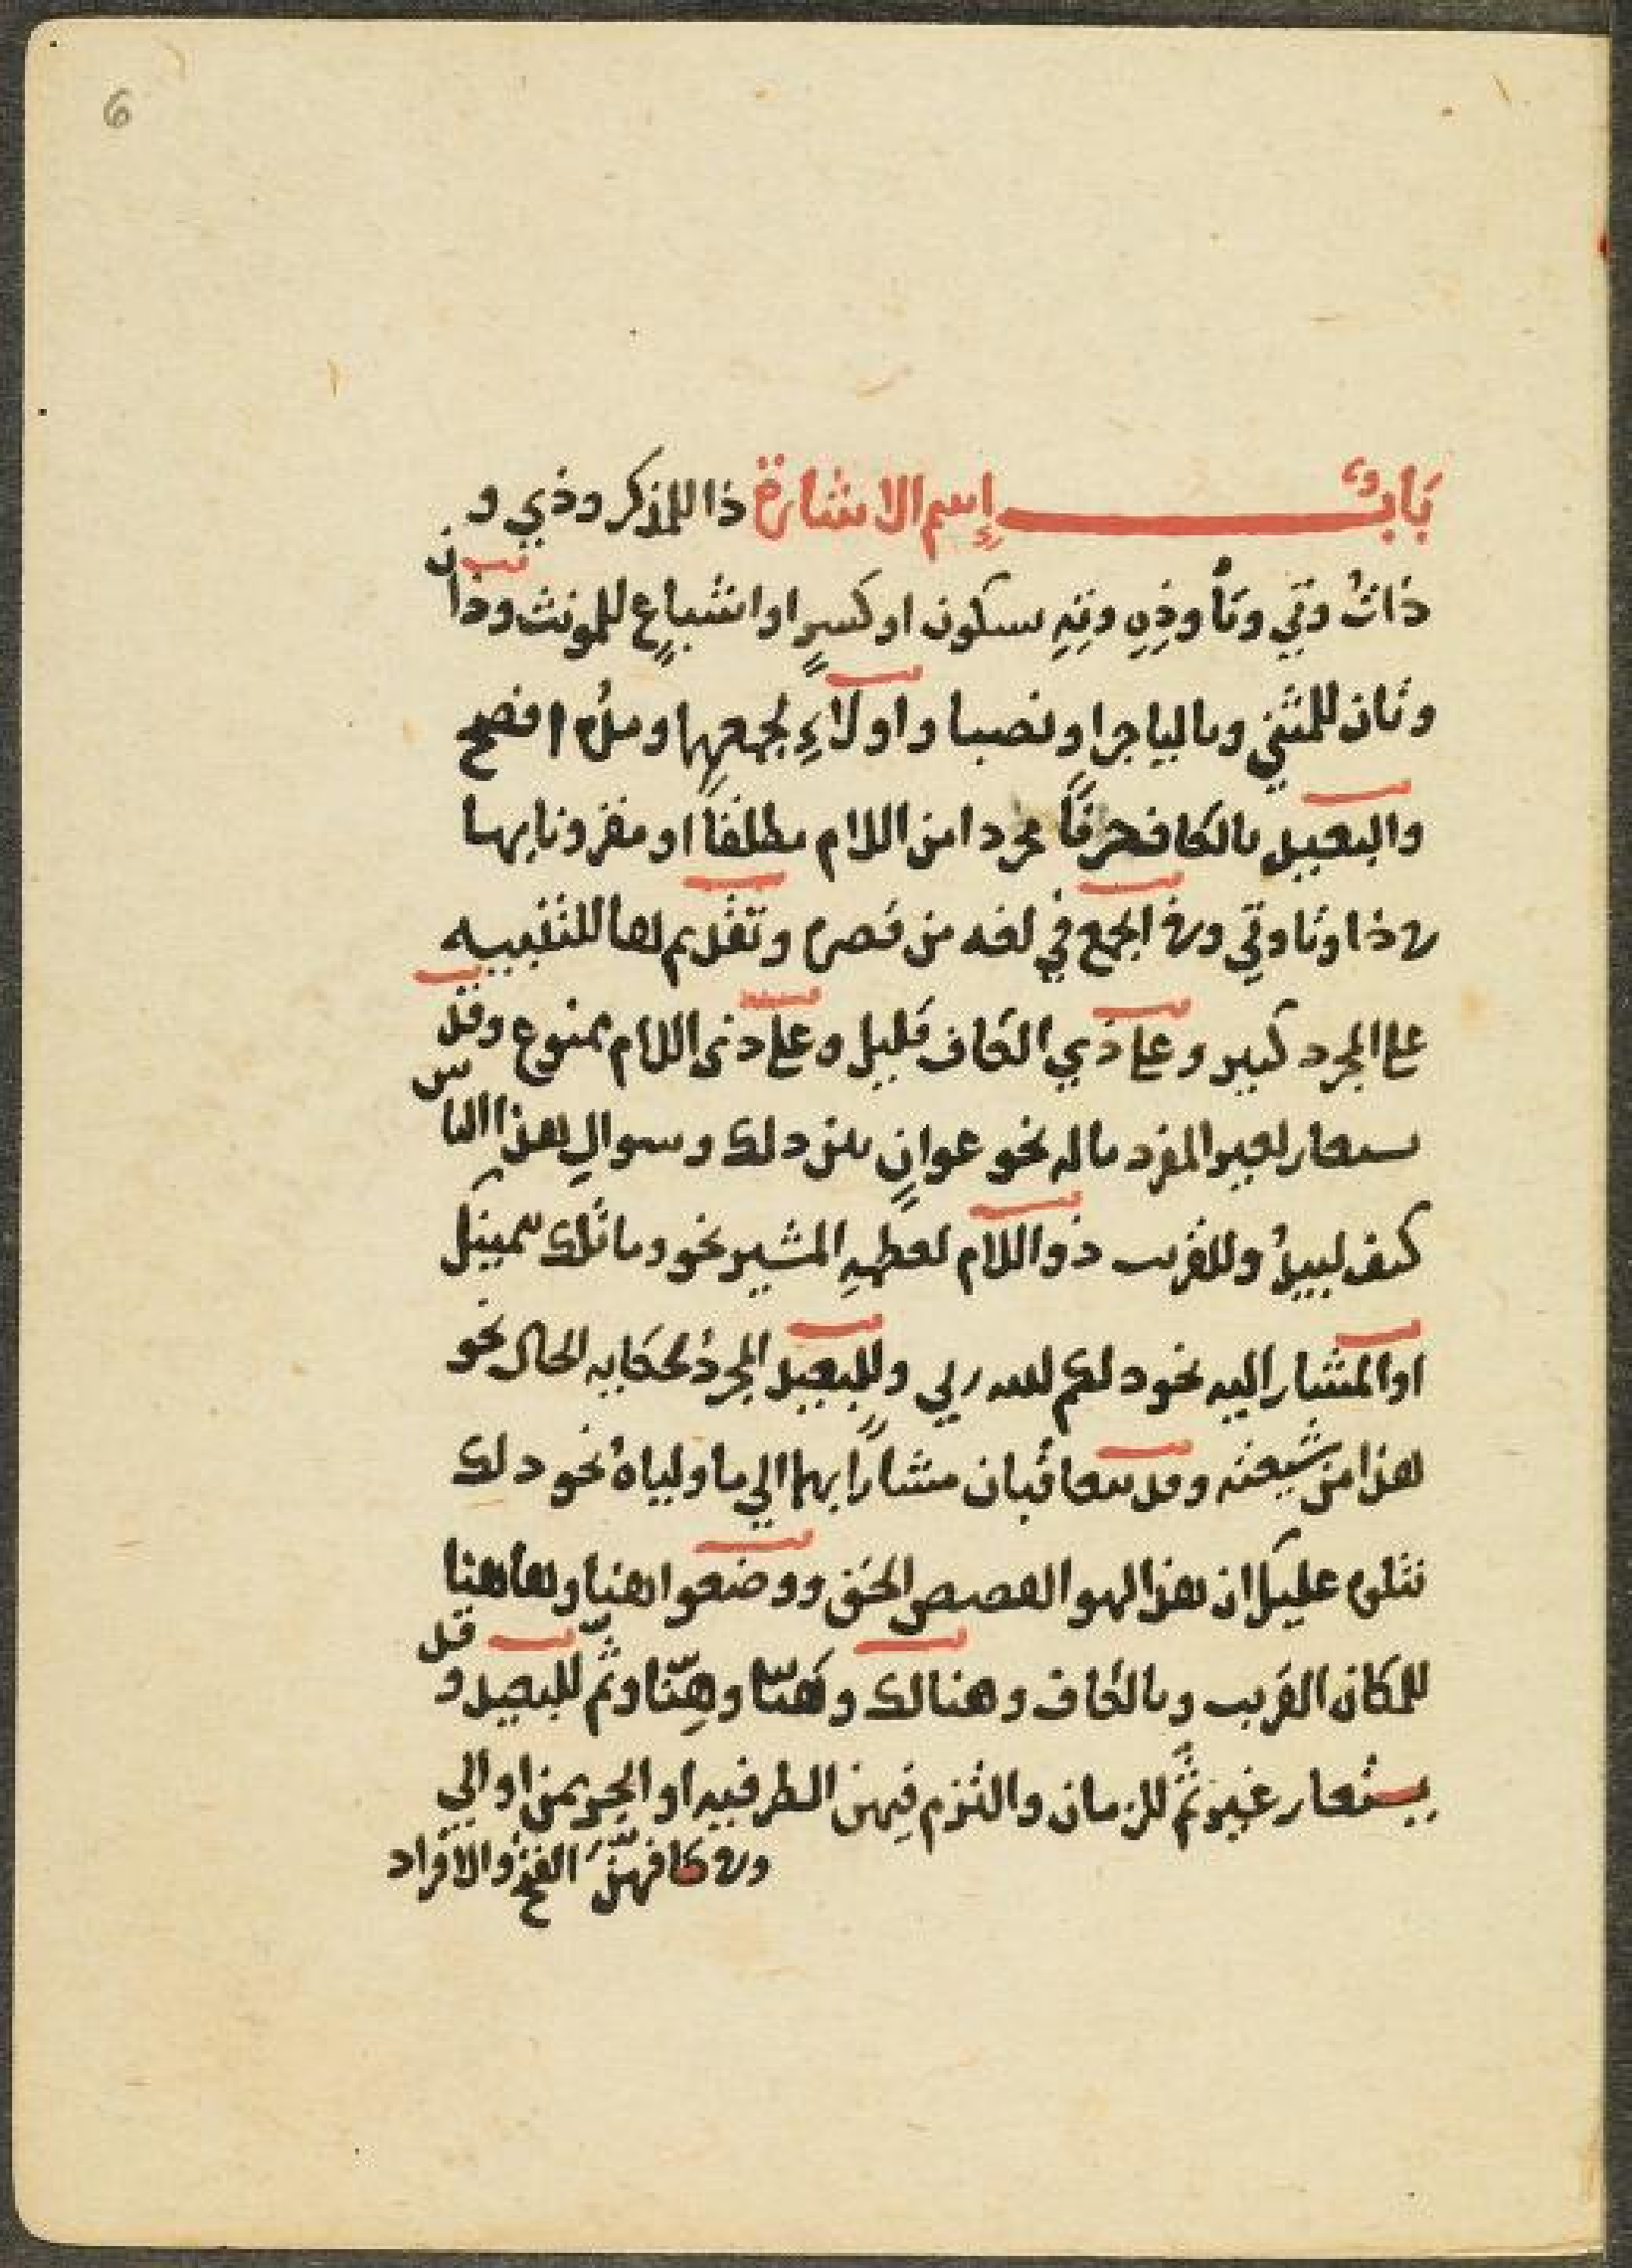 6
بَابٌ إِسم الاشارة ذا للمذكر وذي و
ذاتُ وتي وتا وذِهِ وتِهِ سكون او كسرٍ او اشباعٍ للمونث وذان
وتان للمثني وبالياء جرا ونصبا واولاءِ لجمعهما ومدُه افصح
والبعيد بالكاف حرفًا مجردا من اللام مطلقًا او مقرونا بها
في ذا وتا وتي وفي الجمع في لغه من قصره وتقديم ها للتنبيه
علي المجرد كثير وعلي ذي الكاف قليل وعلي ذي اللام ممنوع وقد
ستعار لغير المفرد ماله نحو عوانٍ بين ذلك وسوالِ هذا الناس
كيف لبيدُ وللقريب ذو اللام لعظمهِ المشير نحو وما تلك بيمينك
او المشار اليه نحو ذلكم الله ربي وللبعيد المجردُ لحكايه الحال نحو
هذا من شيعته وقد يتعاقبان مشارًا بهما الي ما ولياهُ نحو ذلك
نتلوه عليك ان هذا لهو القصص الحق ووضعوا هنا وهاهنا
للمكان القريب وبالكاف وهنالك وهَنّا وهِنّا وثَم للبعيد وقد
يستعار غير ثَمَّ للزمان والتزم فيهن الظرفيه او الجر بمن او الي
وفي كافهنَّ الفتحُ والافراد